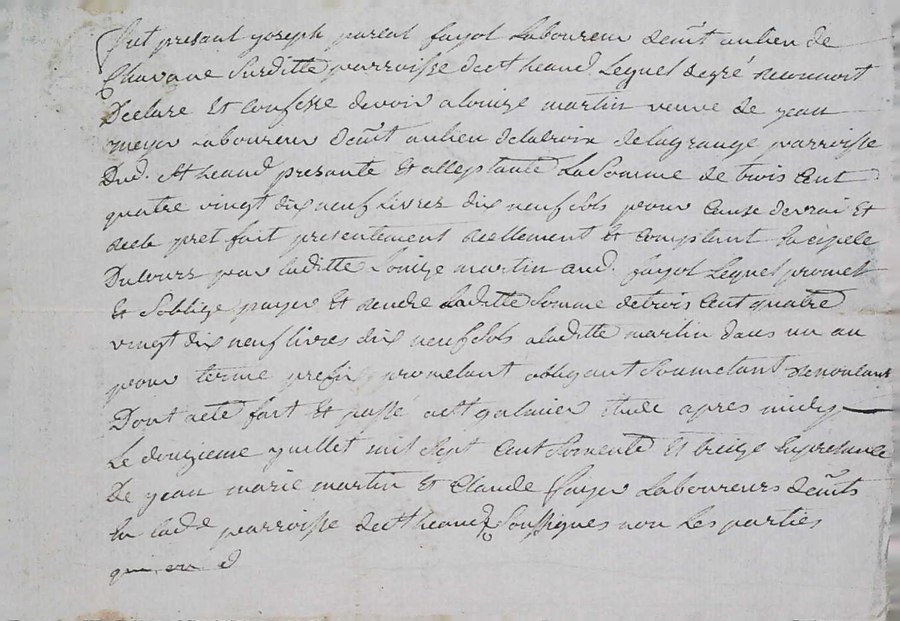 fut presant joseph pareat fayol Laboureur demt aulieu de
Chavane Surditte parroisse de St heand Lequel degré reconnoit
Declare Et confesse devoir a Louize martin veuve de jean
meyer Laboureur demt aulieu delacroix delagrange parroisse
Dud. St heand presante Et acceptante La Somme de trois Cent
quatre vingt dix neuf Livres dix neuf Sols pour Cause devrai Et
reele pret fait presentement reellement Et comptant
Ducours par laditte Louize martin aud. fayol Lequel promet
Et Soblige payer Et rendre Laditte Somme detrois Cent quatre
vingt dix neuf livres dix neuf Sols a laditte martin dans un an
pour terme prefix prometant obligeant Soumetant Renonceant
Dont acte fait Et passé a St galmier Etude apres midy
Le douzieme juillet mil Sept Cent Soixente Et treize Enpresence
De jean marie martin Et Claude fayer Laboureurs demts
En lade parroisse de St heand Soussignes non Les parties
qui en d